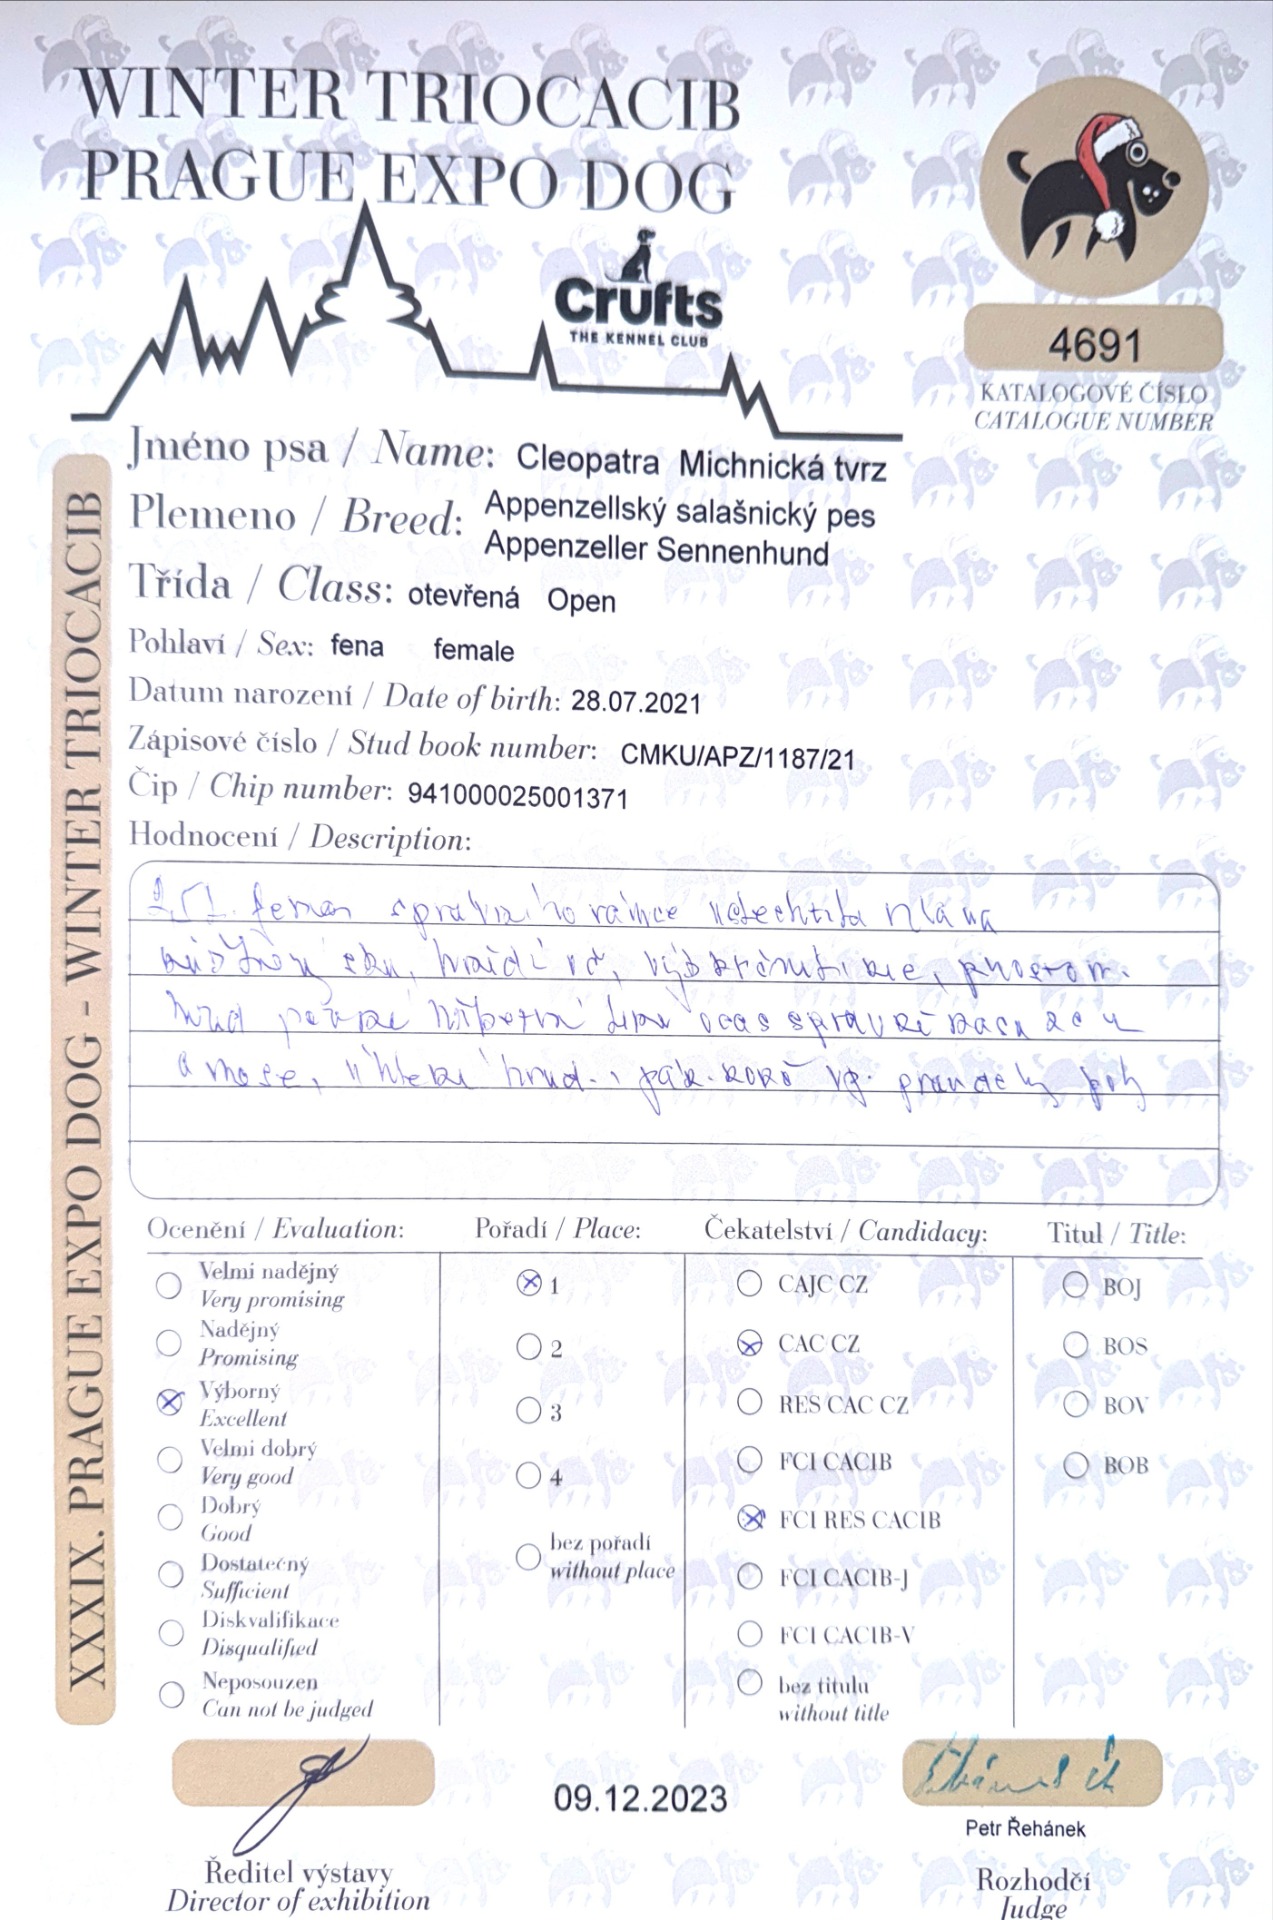 WINTER TRIOCACIB
PRAGUE EXPO DOG
Crufts
THE KENNEL CLUB
4691
KATALOGOVÉ ČÍSLO
CATALOGUE NUMBER
XXXIX. PRAGUE EXPO DOG - WINTER TRIOCACIB
Jméno psa / Name: Cleopatra Michnická tvrz
Plemeno / Breed: Appenzellský salašnický pes
Appenzeller Sennenhund
Třída / Class: otevřená Open
Pohlaví / Sex: fena female
Datum narození / Date of birth: 28.07.2021
Zápisové číslo / Stud book number: CMKU/APZ/1187/21
Čip / Chip number: 941000025001371
Hodnocení / Description:
fena rámce ušlechtilá hlava
ocas
a
Ocenění / Evaluation:
Velmi nadějný
Very promising
Nadějný
Promising
Výborný
Excellent
Velmi dobrý
Very good
Dobrý
Good
Dostatečný
Sufficient
Diskvalifikace
Disqualified
Neposouzen
Can not be judged
Pořadí / Place:
1
2
3
4
bez pořadí
without place
Čekatelství / Candidacy:
CAJC CZ
CAC CZ
RES CAC CZ
FCI CACIB
FCI RES CACIB
FCI CACIB-J
FCI CACIB-V
bez titulu
without title
Titul / Title:
BOJ
BOS
BOV
BOB
Ředitel výstavy
Director of exhibition
09.12.2023
Petr Řehánek
Rozhodčí
Judge